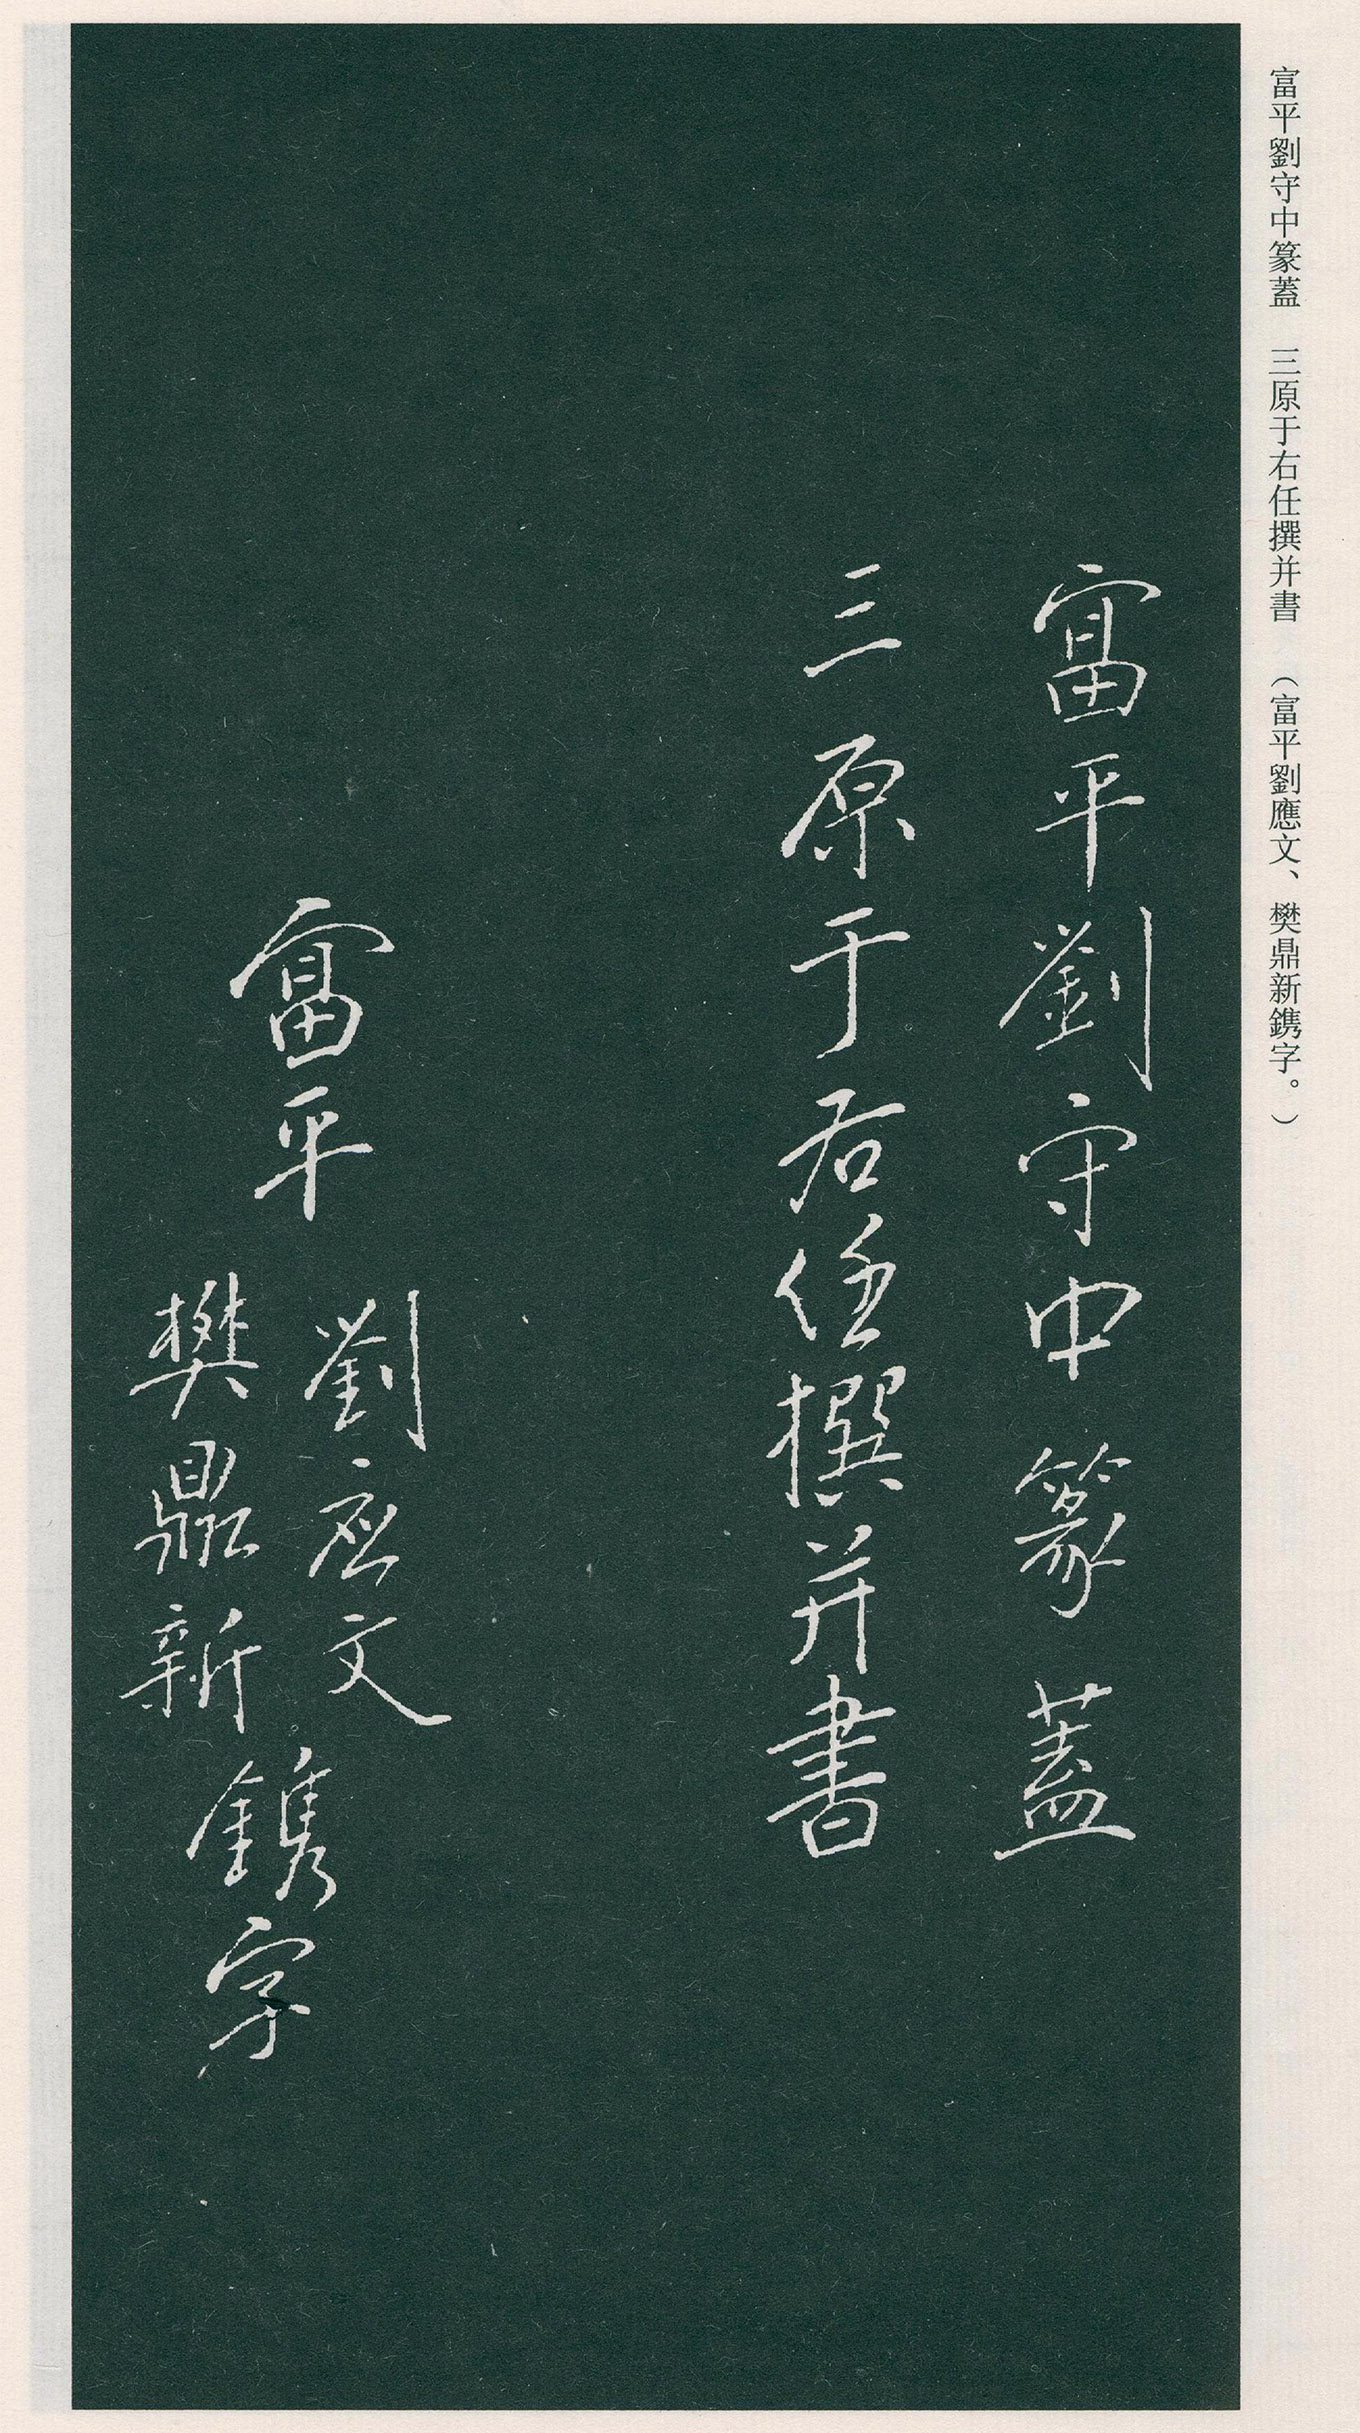 富平劉守中篆蓋　三原于右任撰并書（富平劉應文、樊鼎新鐫字。）
富平劉守中篆蓋
三原于右任撰并書
富平
劉應文
樊鼎新
鐫字